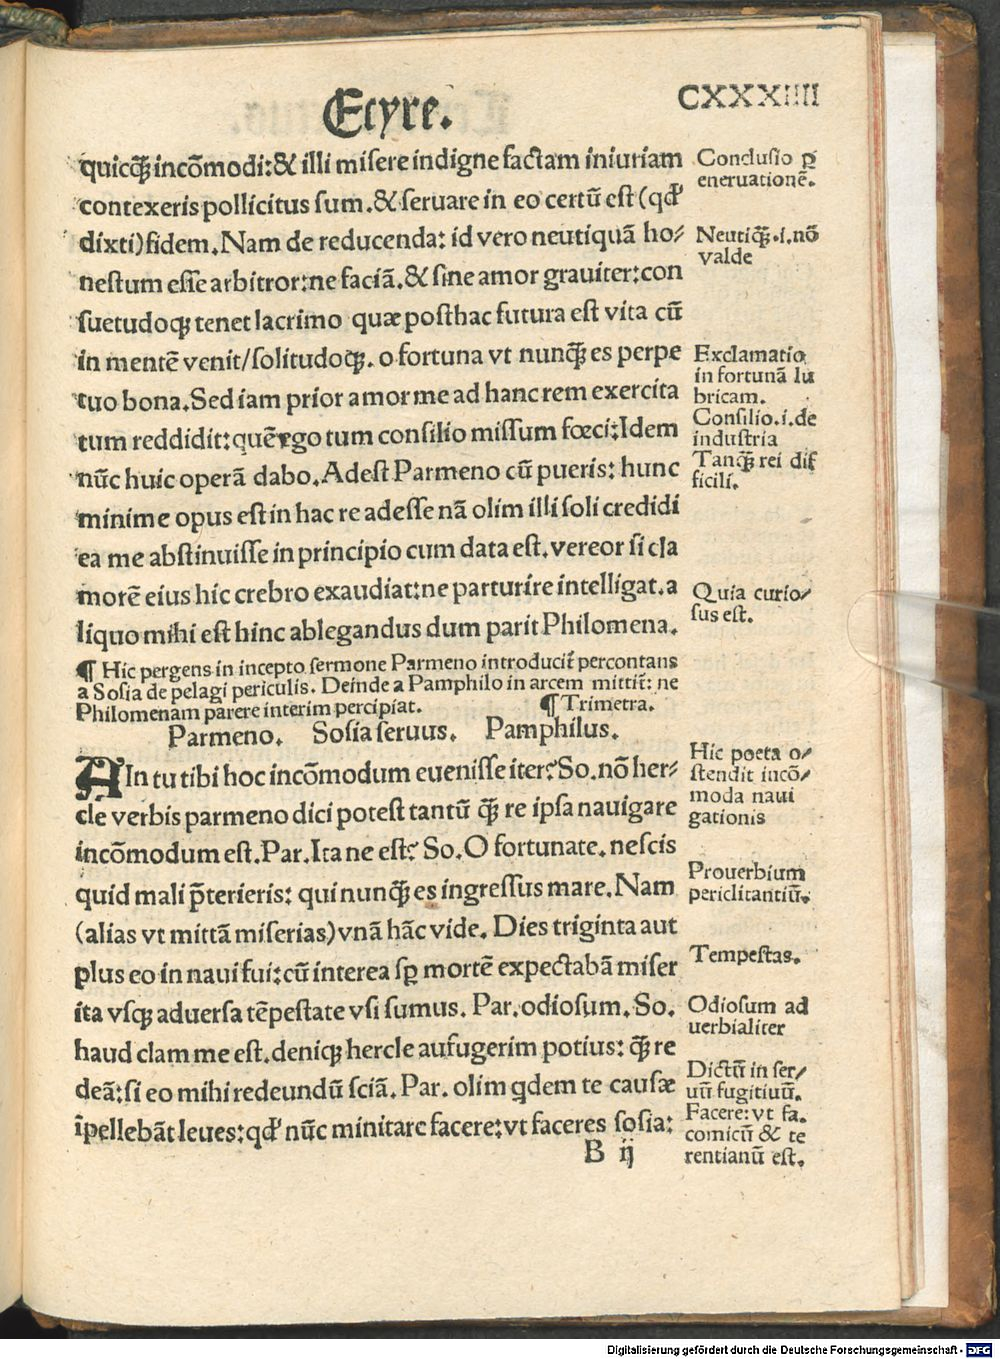 Ecyre.
CXXXIIII
quicq̃ꝫ incõmodi:& illi misere indigne factam iniuriam
contexeris pollicitus sum.& seruare in eo certũ est (qđ
dixti) fidem. Nam de reducenda: id vero neutiquã ho/
nestum esse arbitror:ne faciã.& sine amor grauiter:con
suetudoqꝫ tenet lacrimo quæ posthac futura est vita cũ
in mentẽ venit/solitudoqꝫ. o fortuna vt nunq̃ꝫ es perpe
tuo bona. Sed iam prior amor me ad hanc rem exercita
tum reddidit:quẽ ergo tum consilio missum fœci:Idem
nũc huic operã dabo. Adest Parmeno cũ pueris: hunc
minime opus est in hac re adesse nã olim illi soli credidi
ea me abstinuisse in principio cum data est. vereor si cla
morẽ eius hic crebro exaudiat:ne parturire intelligat. a
liquo mihi est hinc ablegandus dum parit Philomena.
¶ Hic pergens in incepto sermone Parmeno introducit̃ percontans
a Sosia de pelagi periculis. Deinde a Pamphilo in arcem mittit̃: ne
Philomenam parere interim percipiat. ¶ Trimetra.
Parmeno. Sosia seruus. Pamphilus.
AIn tu tibi hoc incõmodum euenisse iter? So. nõ her/
cle verbis parmeno dici potest tantũ q̃ꝫ re ipsa nauigare
incõmodum est. Par. Ita ne est? So. O fortunate. nescis
quid mali p̃terieris: qui nunq̃ꝫ es ingressus mare. Nam
(alias vt mittã miserias) vnã hãc vide. Dies triginta aut
plus eo in naui fui:cũ interea sꝑ mortẽ expectabã miser
ita vsqꝫ aduersa tẽpestate vsi sumus. Par. odiosum. So.
haud clam me est. deniqꝫ hercle aufugerim potius: q̃ꝫ re
deã: si eo mihi redeundũ sciã. Par. olim qdem te causæ
ĩpellebãt leues: qđ nũc minitare facere:vt faceres sosia:
B ij
Conclusio ꝑ
eneruationẽ.
Neutiq̃ꝫ.i. nõ
valde
Exclamatio
in fortunã lu
bricam.
Consilio.i.de
industria
Tanq̃ꝫ rei dif
ficili.
Quia curio/
sus est.
Hic poeta o/
stendit incõ/
moda naui
gationis
Prouerbium
periclitantiũ.
Tempestas.
Odiosum ad
uerbialiter
Dictũ in ser/
uũ fugitiuũ.
Facere: vt fa.
comicũ & te
rentianũ est.
Digitalisierung gefördert durch die Deutsche Forschungsgemeinschaft - DFG